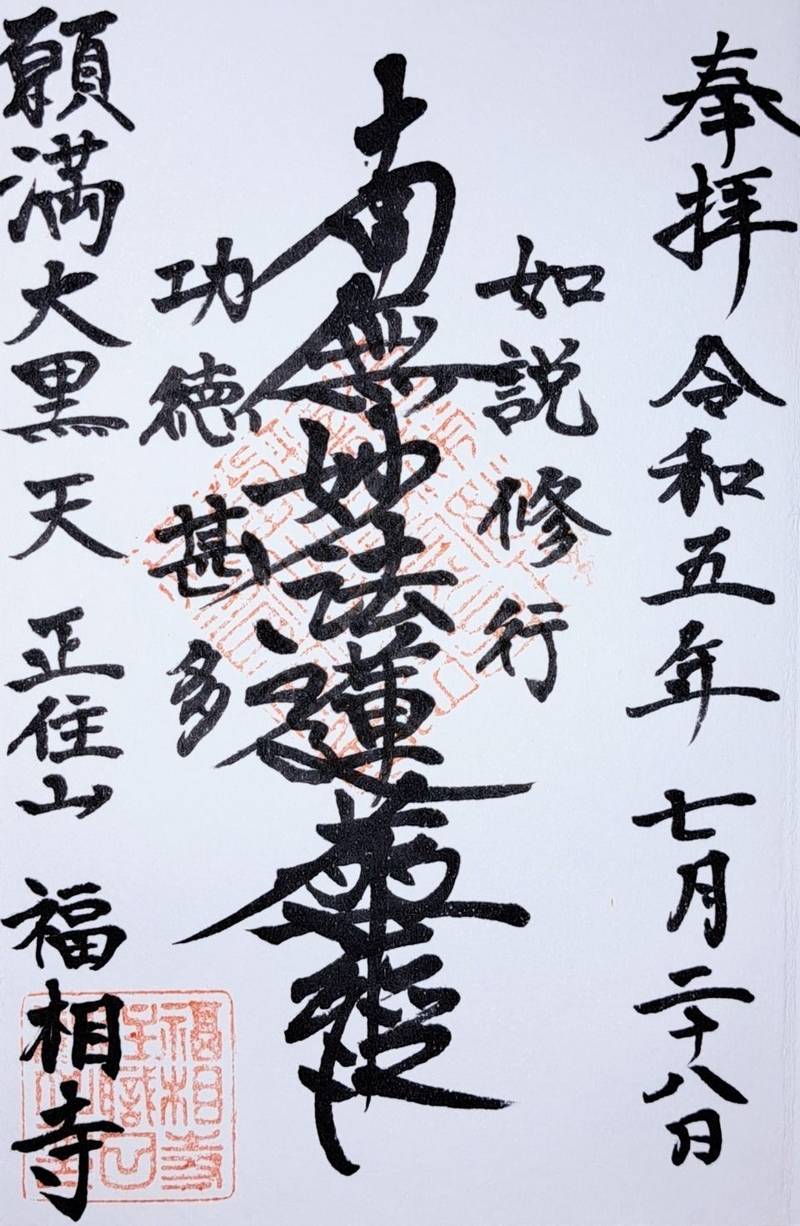 奉拝 令和五年 七月二十八日
如説修行
南無妙法蓮華経
功徳甚多
願満大黒天 正住山 福相寺